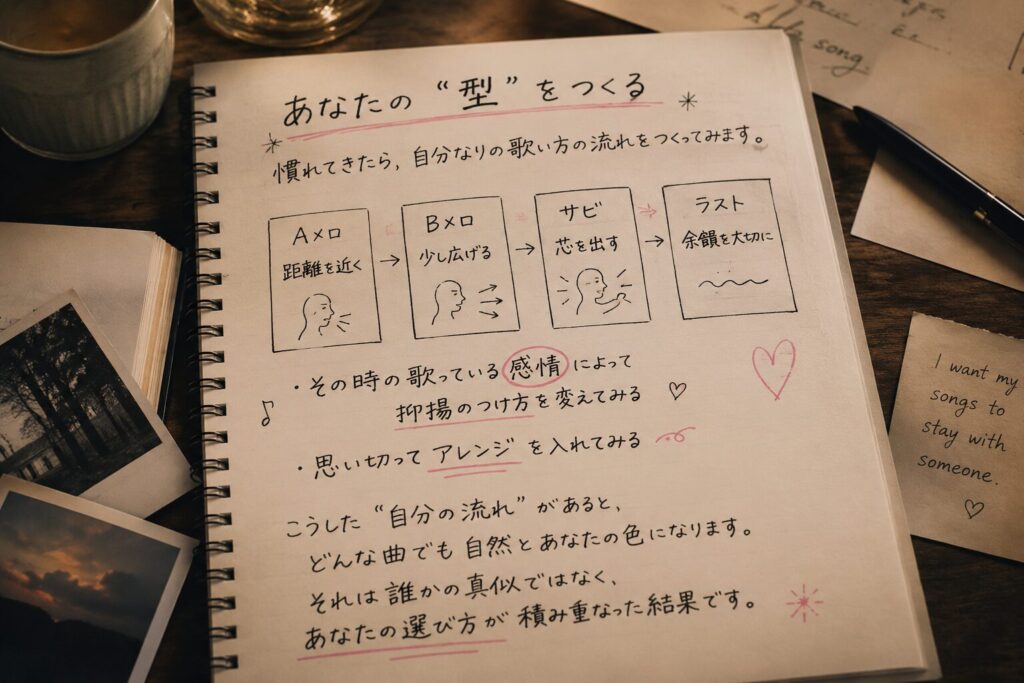 あなたの“型”をつくる
慣れてきたら、自分なりの歌い方の流れをつくってみます。
Aメロ
距離を近く
→
Bメロ
少し広げる
→
サビ
芯を出す
→
ラスト
余韻を大切に
・その時の歌っている感情によって
抑揚のつけ方を変えてみる
・思い切ってアレンジを入れてみる
こうした“自分の流れ”があると、
どんな曲でも自然とあなたの色になります。
それは誰かの真似ではなく、
あなたの選び方が積み重なった結果です。
song.
I want my
songs to
stay with
someone.
♡